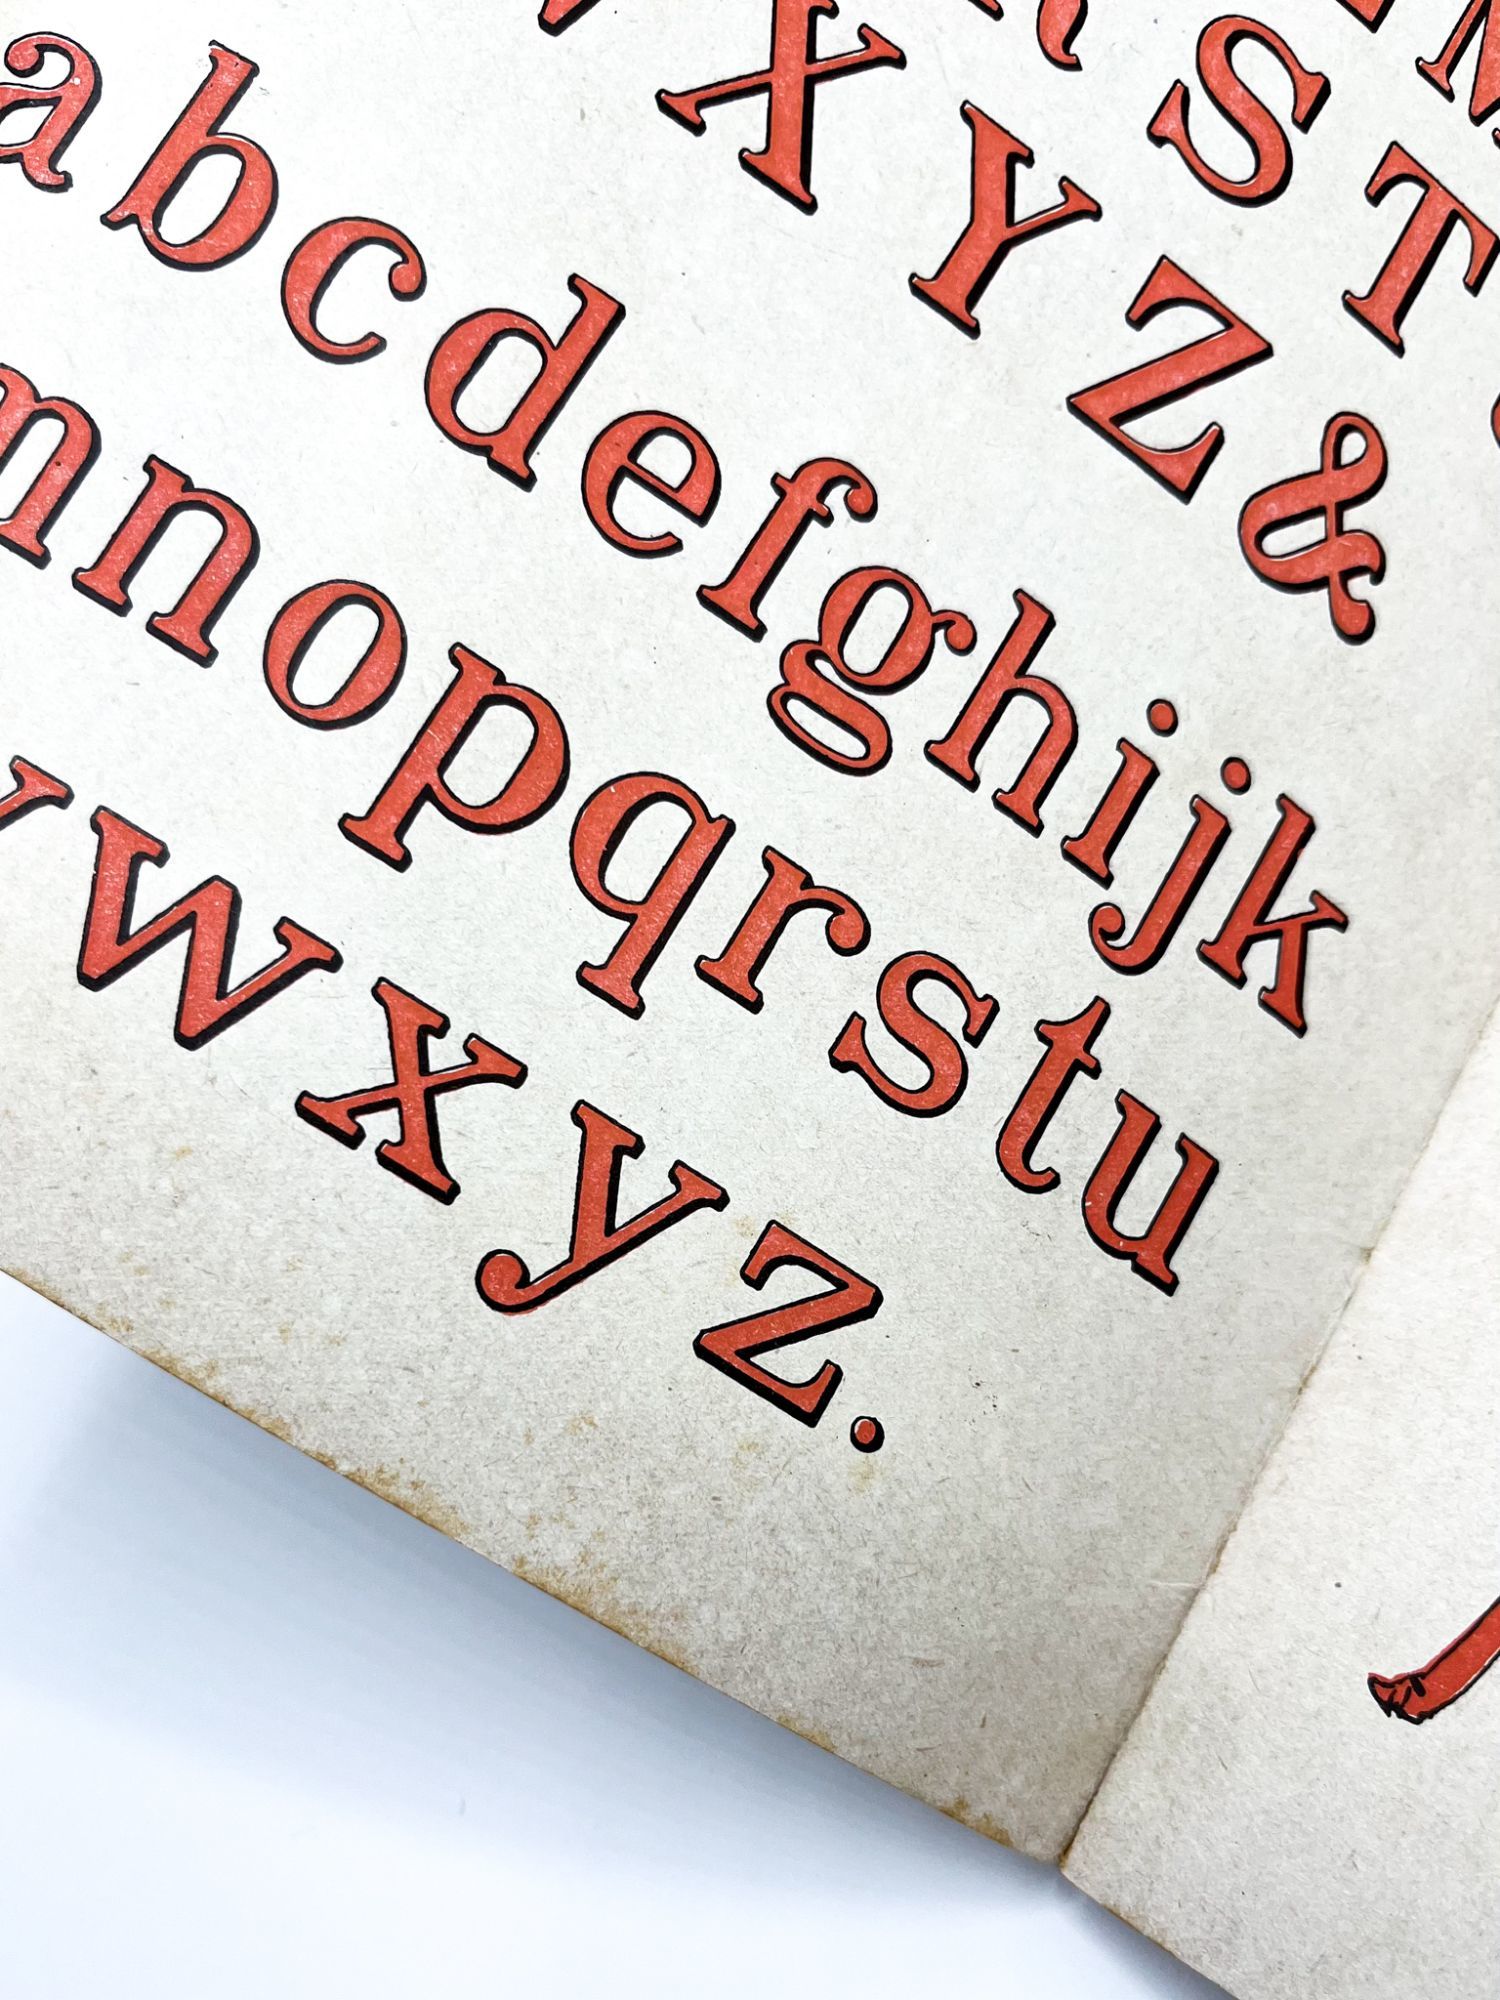 M
R S T
X Y Z &
abcdefghijk
mnopqrstu
vwxyz.